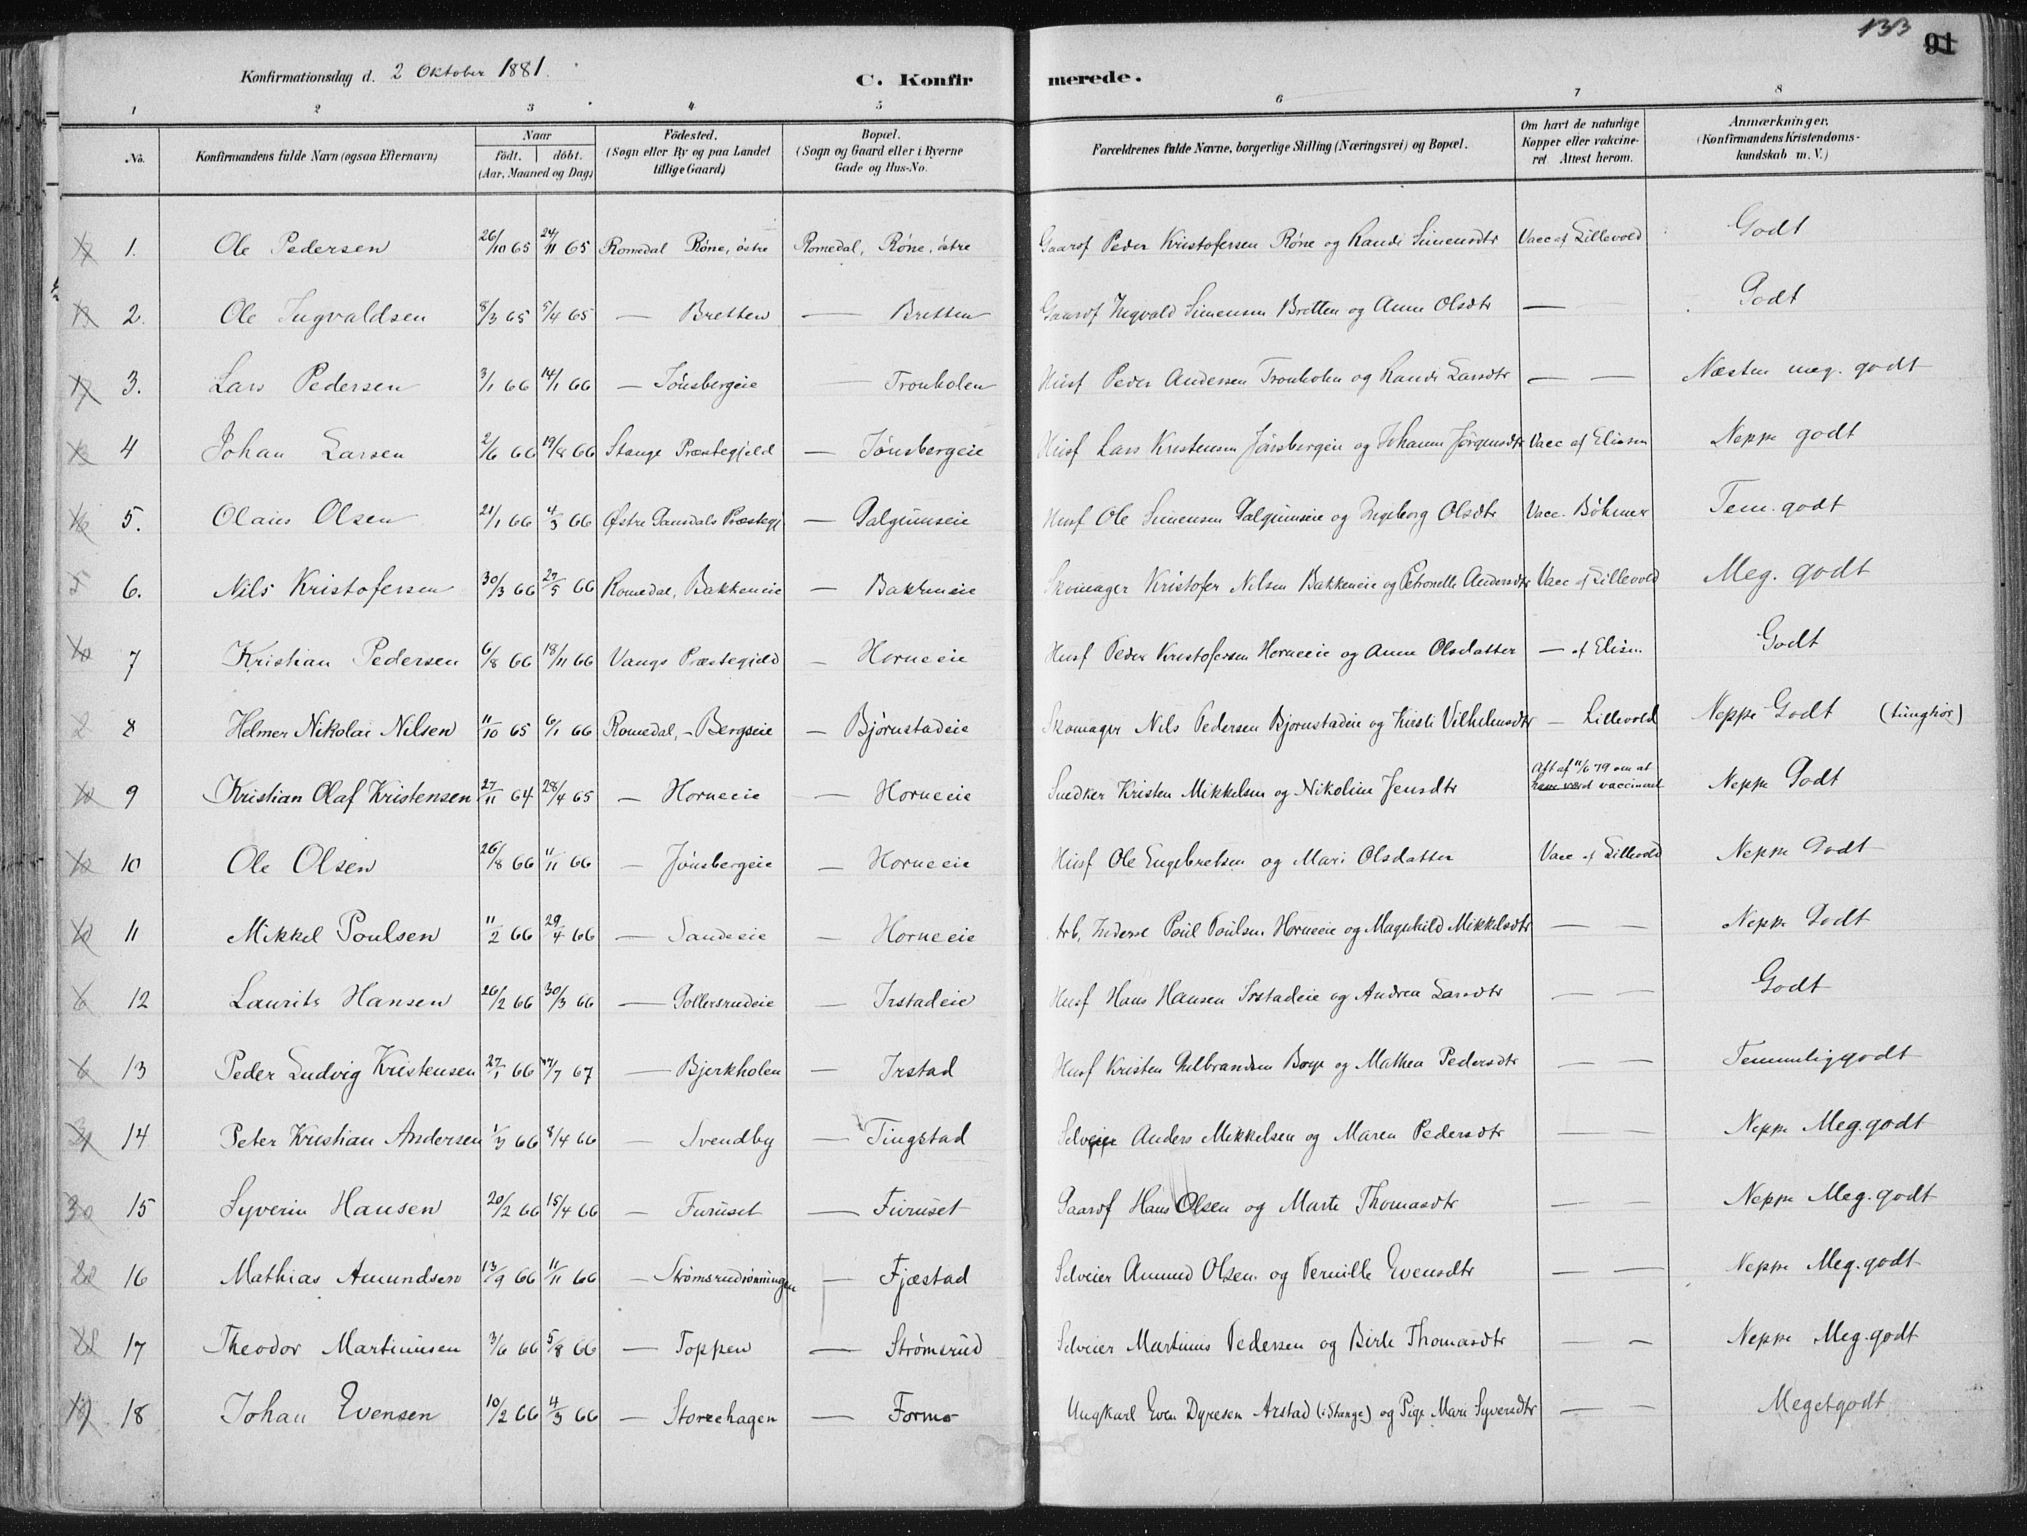 133
91
Konfirmationsdag d. 2 Oktober 1881.
C. Konfirmerede.
1 2 3 4 5 6 7 8
No. Konfirmandens fulde Navn (ogsaa Efternavn) Naar födt. döbt. (Aar, Maaned og Dag) Födested. (Sogn eller By og paa Landet tillige Gaard) Bopæl. (Sogn og Gaard eller i Byerne Gade og Hus-No. Forældrenes fulde Navne, borgerlige Stilling (Næringsvei) og Bopæl. Om havt de naturlige Kopper eller vakcineret Attest herom. Anmærkninger. (Konfirmandens Kristendomskundskab m. V.)
1. Ole Pedersen 26/10 65 24/11 65 Romedal Röne, östre Romedal, Röne, östre Gaardf Peder Kristofersen Röne og Randi Simensdtr Vacc af Lillevold Godt
2. Ole Ingvaldsen 8/3 65 5/4 65 — Bretten — Bretten Gaardf Ingvald Simensen Bretten og Anne Olsdtr — Godt
3. Lars Pedersen 3/1 66 14/1 66 — Jönsbergeie — Tronholen Husf Peder Andersen Tronholen og Randi Larsdtr — — Næsten meg. godt
4 Johan Larsen 2/6 66 19/8 66 Stange Præstegjeld — Jönsbergeie Husf Lars Kristensen Jönsbergeie og Johanne Jörgensdtr Vacc af Eliesen Neppe godt
5. Olaus Olsen 21/1 66 4/3 66 Østre Gausdals Præstegj — Galgumseie Husf Ole Simensen Galgumseie og Ingeborg Olsdtr Vacc. Böhmer Tem. godt
6. Nils Kristofersen 30/3 66 27/5 66 Romedal, Bakkeneie — Bakkeneie Skomager Kristofer Nilsen Bakkeneie og Petronelle Andersdtr Vacc af Lillevold Meg. godt
7 Kristian Pedersen 6/8 66 18/11 66 Vangs Præstegjeld — Horneeie Husf Peder Kristofersen Horneeie og Anne Olsdatter — af Elisen. Godt
8 Helmer Nikolai Nilsen 11/10 65 6/1 66 Romedal, - Bergseie — Björnstadeie Skomager Nils Pedersen Björnstadeie og Kirsti Vilhelmsdtr — Lillevold Neppe Godt (tunghör)
9 Kristian Olaf Kristensen 27/11 64 28/4 65 — Horneeie — Horneeie Snedker Kristen Mikkelsen og Nikoline Jensdtr Att af 11/6 79 om at have været vaccineret Neppe Godt
10 Ole Olsen 26/8 66 11/11 66 — Jönsbergeie — Horneeie Husf Ole Engebretsen og Mari Olsdatter Vacc af Lillevold Neppe Godt
11 Mikkel Poulsen 11/2 66 29/4 66 — Sandeeie — Horneeie Arb, Inderst Poul Poulsen Horneeie og Magnhild Mikkelsdtr — — Neppe Godt
12 Laurits Hansen 26/2 66 30/3 66 — Gollersrudeie — Irstadeie Husf Hans Hansen Irstadeie og Andrea Larsdtr — — Godt
13 Peder Ludvig Kristensen 27/1 66 /7 67 — Bjerkholen — Irstad Husf Kristen Gulbrandsen Borge og Mathea Pedersdtr — — Temmelig godt
14 Peter Kristian Andersen 1/3 66 8/4 66 — Svendby — Tingstad Selveier Anders Mikkelsen og Maren Pedersdtr — — Neppe Meg. godt
15 Syverin Hansen 20/2 66 15/4 66 — Furuset — Furuset Gaardf Hans Olsen og Marte Thomasdtr — — Neppe Meg. godt
16 Mathias Amundsen 13/9 66 11/11 66 — Strömsrudrönningen — Fjæstad Selveier Amund Olsen og Pernille Evensdtr — — Neppe Meg. godt
17 Theodor Martinusen 3/6 66 5/8 66 — Toppen — Strömsrud Selveier Martinus Pedersen og Birte Thomasdtr — — Neppe Meg. godt
18 Johan Evensen 10/2 66 4/3 66 — Storrehagen — Formo Ungkarl Even Dyresen Arstad (i Stange) og Pige Mari Syversdtr — — Meget godt